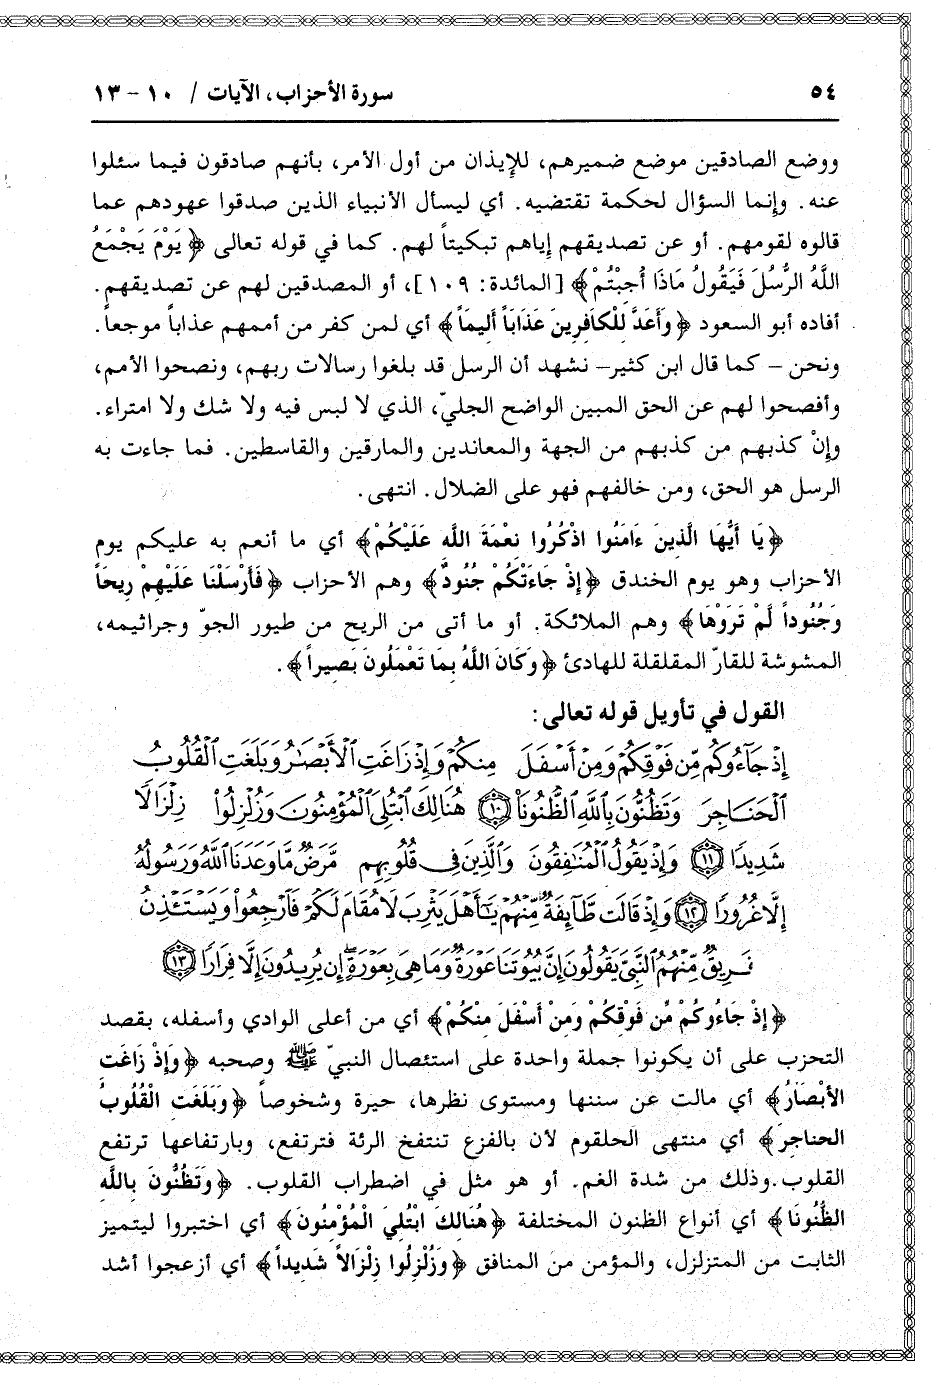 ٥٤ سورة الأحزاب، الآيات / ١٠ - ١٣
ووضع الصادقين موضع ضميرهم، للإيذان من أول الأمر، بأنهم صادقون فيما سئلوا
عنه. وإنما السؤال لحكمة تقتضيه. أي ليسأل الأنبياء الذين صدقوا عهودهم عما
قالوه لقومهم. أو عن تصديقهم إياهم تبكيتاً لهم. كما في قوله تعالى ﴿يَوْمَ يَجْمَعُ
اللَّهُ الرُّسُلَ فَيَقُولُ مَاذَا أُجِبْتُمْ﴾ [المائدة: ١٠٩]، أو المصدقين لهم عن تصديقهم.
أفاده أبو السعود ﴿وَأَعَدَّ لِلْكَافِرِينَ عَذَاباً أَلِيماً﴾ أي لمن كفر من أممهم عذاباً موجعاً.
ونحن – كما قال ابن كثير– نشهد أن الرسل قد بلغوا رسالات ربهم، ونصحوا الأمم،
وأفصحوا لهم عن الحق المبين الواضح الجليّ، الذي لا لبس فيه ولا شك ولا امتراء.
وإنْ كذبهم من كذبهم من الجهة والمعاندين والمارقين والقاسطين. فما جاءت به
الرسل هو الحق، ومن خالفهم فهو على الضلال. انتهى.
﴿يَا أَيُّهَا الَّذِينَ ءَامَنُوا اذْكُرُوا نِعْمَةَ اللَّه عَلَيْكُمْ﴾ أي ما أنعم به عليكم يوم
الأحزاب وهو يوم الخندق ﴿إِذْ جَاءَتْكُمْ جُنُودٌ﴾ وهم الأحزاب ﴿فَأَرْسَلْنَا عَلَيْهِمْ رِيحاً
وَجُنُوداً لَّمْ تَرَوْهَا﴾ وهم الملائكة. أو ما أتى من الريح من طيور الجوّ وجراثيمه،
المشوشة للقارّ المقلقلة للهادئ ﴿وَكَانَ اللَّهُ بِمَا تَعْمَلُونَ بَصِيراً﴾.
القول في تأويل قوله تعالى:
إِذْ جَآءُوكُم مِّن فَوْقِكُمْ وَمِنْ أَسْفَلَ مِنكُمْ وَإِذْ زَاغَتِ ٱلْأَبْصَٰرُ وَبَلَغَتِ ٱلْقُلُوبُ
ٱلْحَنَاجِرَ وَتَظُنُّونَ بِٱللَّهِ ٱلظُّنُونَا۠ ۝١٠ هُنَالِكَ ٱبْتُلِىَ ٱلْمُؤْمِنُونَ وَزُلْزِلُوا۟ زِلْزَالًا
شَدِيدًا ۝١١ وَإِذْ يَقُولُ ٱلْمُنَٰفِقُونَ وَٱلَّذِينَ فِى قُلُوبِهِم مَّرَضٌ مَّا وَعَدَنَا ٱللَّهُ وَرَسُولُهُۥٓ
إِلَّا غُرُورًا ۝١٢ وَإِذْ قَالَت طَّآئِفَةٌ مِّنْهُمْ يَٰٓأَهْلَ يَثْرِبَ لَا مُقَامَ لَكُمْ فَٱرْجِعُوا۟ وَيَسْتَـْٔذِنُ
فَرِيقٌ مِّنْهُمُ ٱلنَّبِىَّ يَقُولُونَ إِنَّ بُيُوتَنَا عَوْرَةٌ وَمَا هِىَ بِعَوْرَةٍ إِن يُرِيدُونَ إِلَّا فِرَارًا ۝١٣
﴿إِذْ جَاءُوكُمْ مِّن فَوْقِكُمْ وَمِنْ أَسْفَلَ مِنكُمْ﴾ أي من أعلى الوادي وأسفله، بقصد
التحزب على أن يكونوا جملة واحدة على استئصال النبيّ ﷺ وصحبه ﴿وَإِذْ زَاغَتِ
الأَبْصَارُ﴾ أي مالت عن سننها ومستوى نظرها، حيرة وشخوصاً ﴿وَبَلَغَتِ الْقُلُوبُ
الحناجِرَ﴾ أي منتهى الحلقوم لأن بالفزع تنتفخ الرئة فترتفع، وبارتفاعها ترتفع
القلوب.وذلك من شدة الغم. أو هو مثل في اضطراب القلوب. ﴿وَتَظُنُّونَ بِاللَّهِ
الظُّنُونَا﴾ أي أنواع الظنون المختلفة ﴿هُنَالِكَ ابْتُلِيَ الْمُؤْمِنُونَ﴾ أي اختبروا ليتميز
الثابت من المتزلزل، والمؤمن من المنافق ﴿وَزُلْزِلُوا زِلْزَالاً شَدِيداً﴾ أي أزعجوا أشد